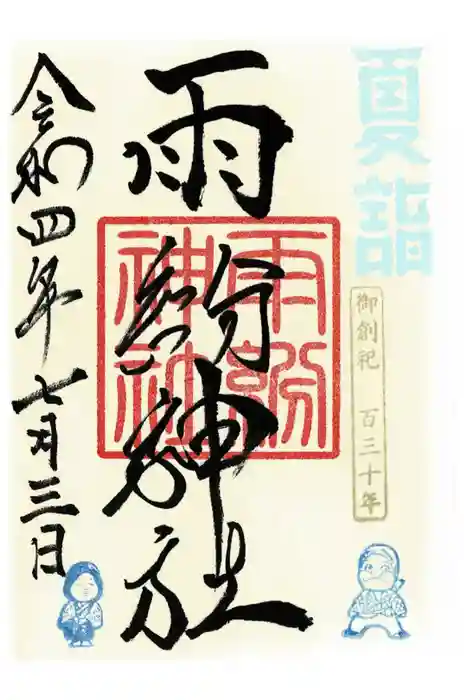 夏詣
御創祀 百三十年
雨紛神社
雨紛神社
令和四年七月三日